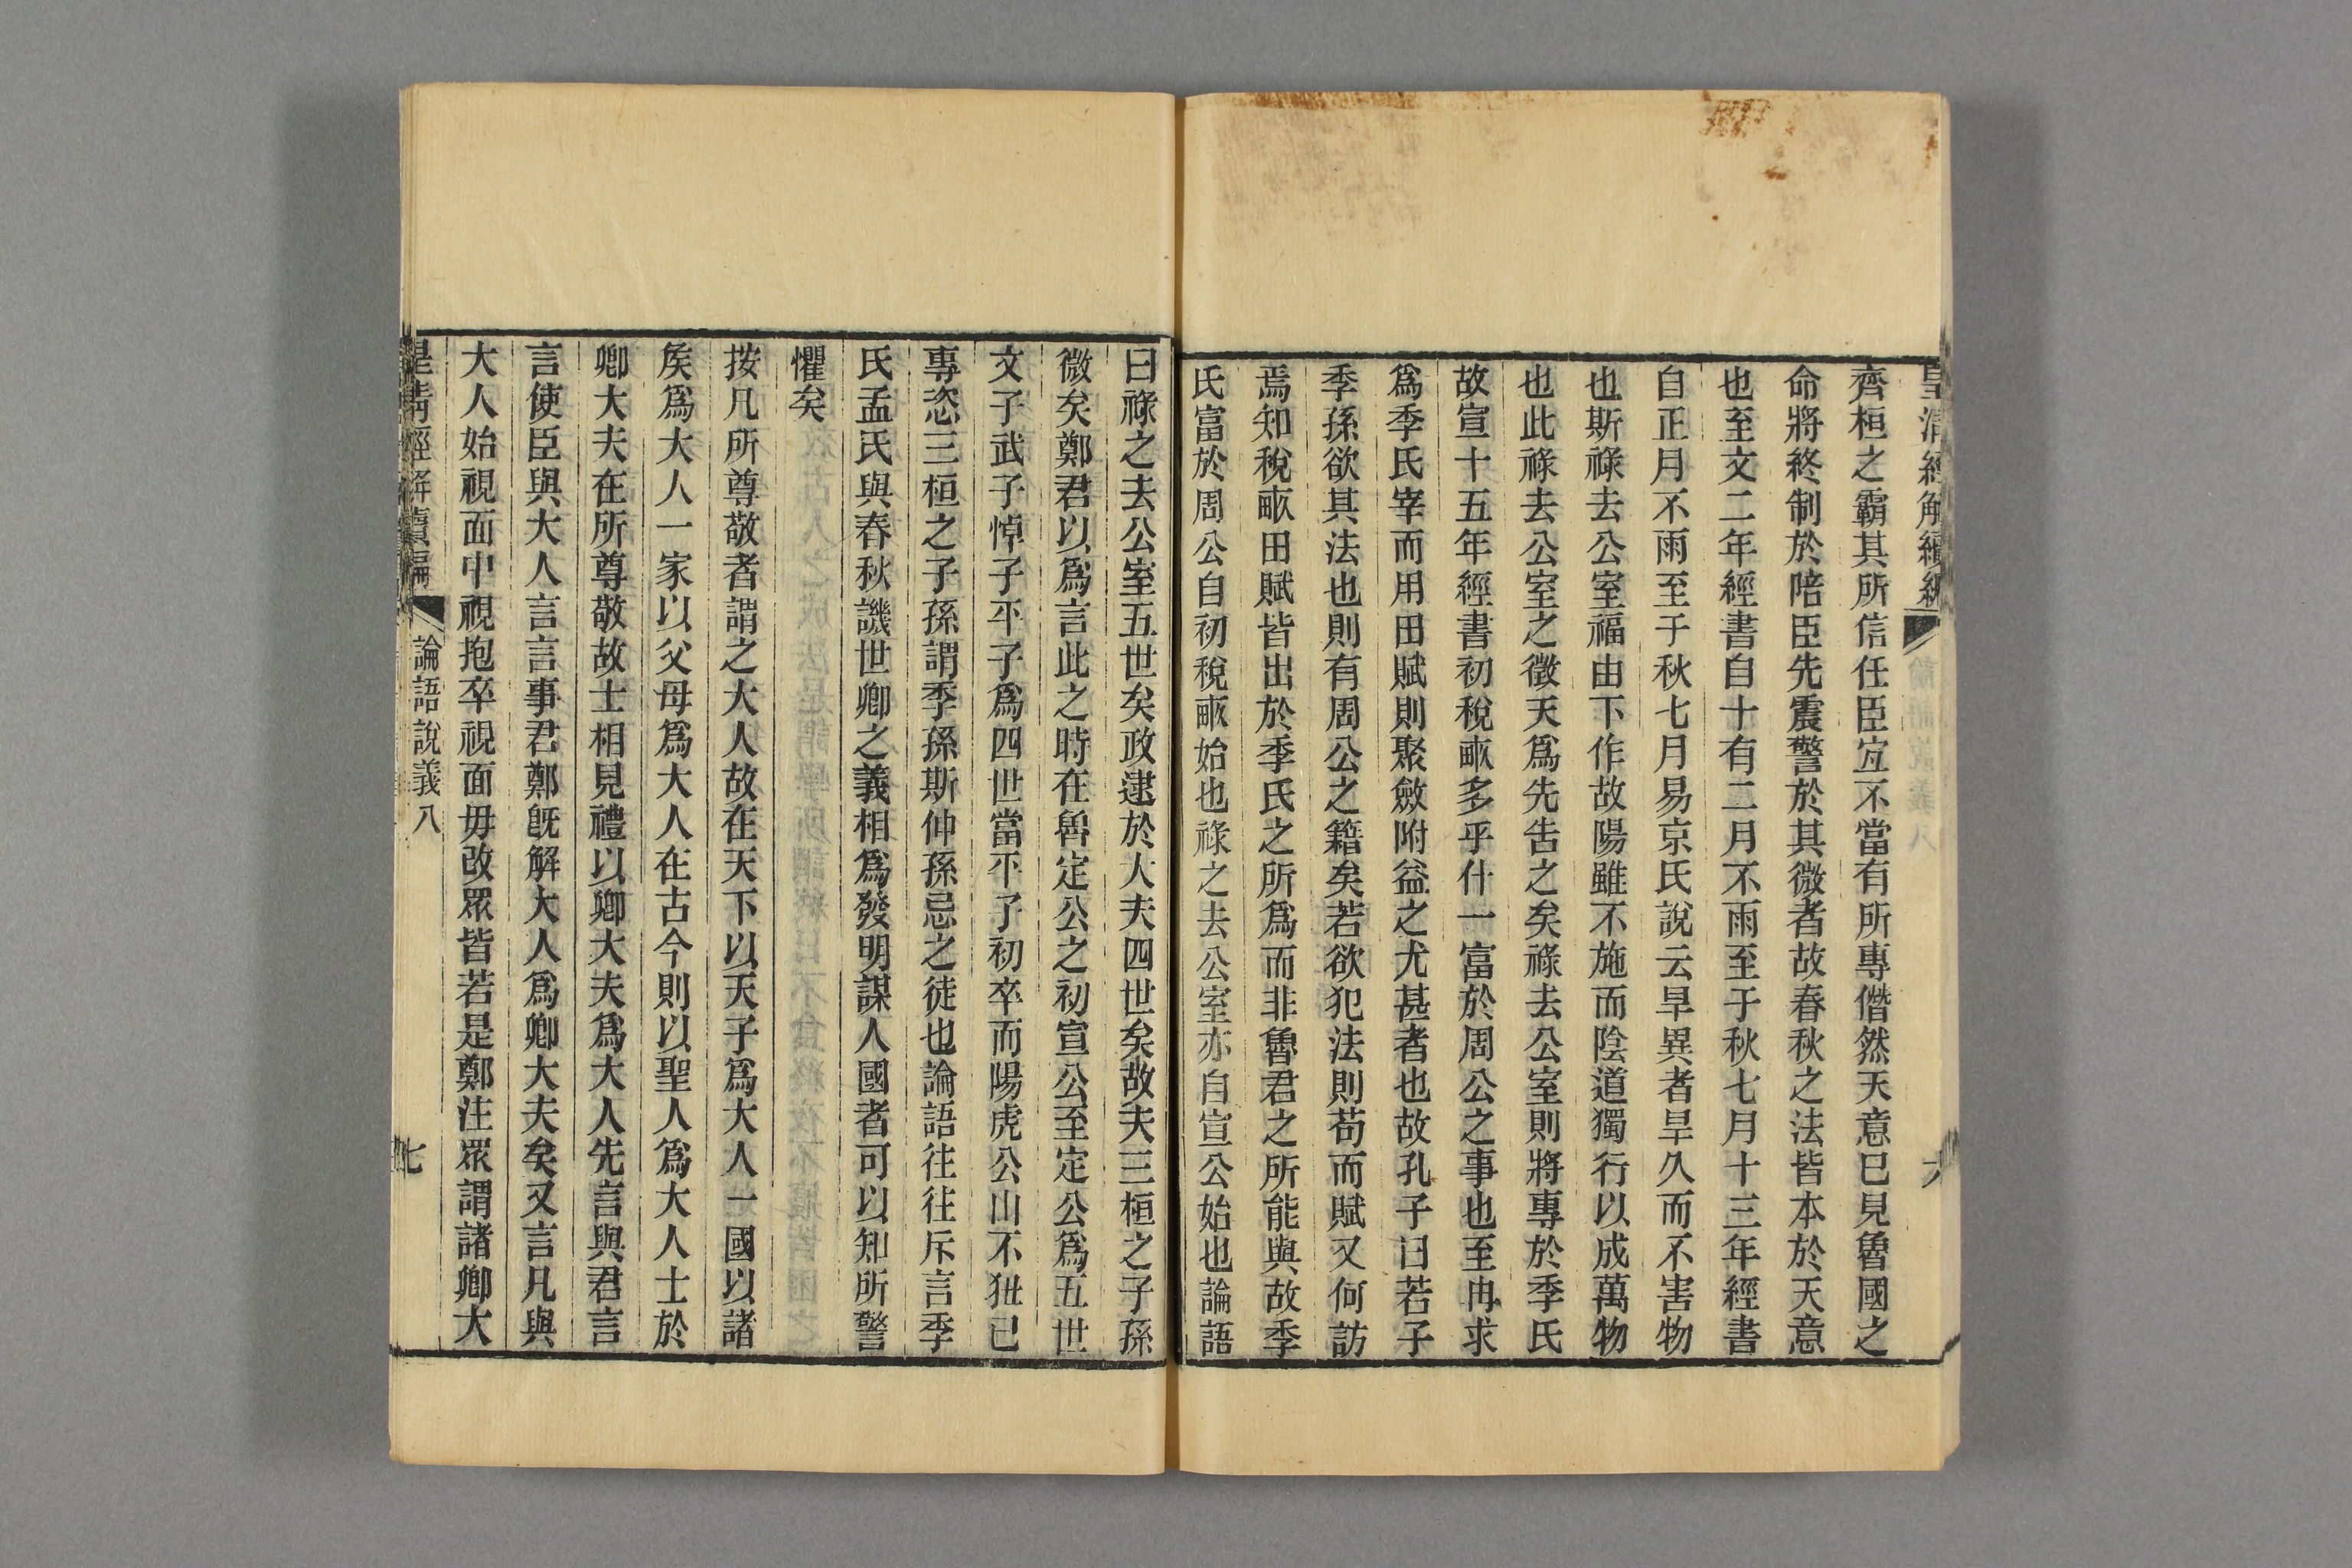 皇清經解續編
六
齊桓之霸其所信任臣宜不當有所專僭然天意已見魯國之
命將終制於陪臣先震警於其微者故春秋之法皆本於天意
也至文二年經書自十有二月不雨至于秋七月十三年經書
自正月不雨至于秋七月易京氏說云旱異者旱久而不害物
也斯祿去公室福由下作故陽雖不施而陰道獨行以成萬物
也此祿去公室之徵天爲先告之矣祿去公室則將專於季氏
故宣十五年經書初稅畝多乎什一富於周公之事也至冉求
爲季氏宰而用田賦則聚斂附益之尤甚者也故孔子曰若子
季孫欲其法也則有周公之籍矣若欲犯法則苟而賦又何訪
焉知稅畝田賦皆出於季氏之所爲而非魯君之所能與故季
氏富於周公自初稅畝始也祿之去公室亦自宣公始也論語
曰祿之去公室五世矣政逮於大夫四世矣故夫三桓之子孫
微矣鄭君以爲言此之時在魯定公之初宣公至定公爲五世
文子武子悼子平子爲四世當平子初卒而陽虎公山不狃已
專恣三桓之子孫謂季孫斯仲孫忌之徒也論語往往斥言季
氏孟氏與春秋譏世卿之義相爲發明謀人國者可以知所警
懼矣
按凡所尊敬者謂之大人故在天下以天子爲大人一國以諸
矦爲大人一家以父母爲大人在古今則以聖人爲大人士於
卿大夫在所尊敬故士相見禮以卿大夫爲大人先言與君言
言使臣與大人言言事君鄭旣解大人爲卿大夫矣又言凡與
大人始視面中視抱卒視面毋改眾皆若是鄭注眾謂諸卿大
皇清經解續編
論語說義八
七